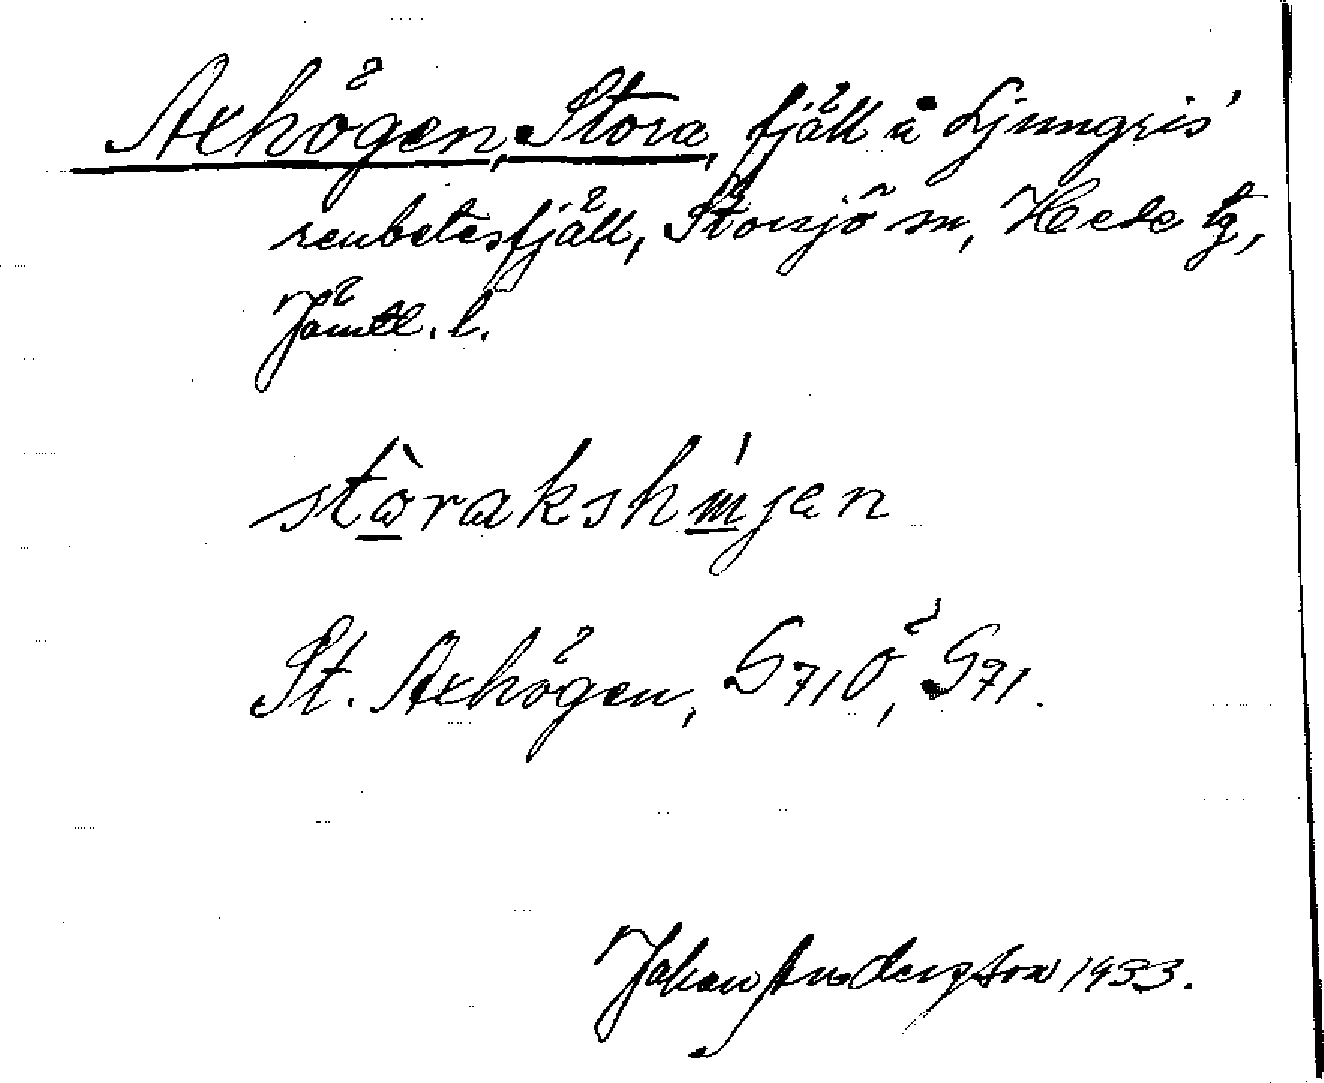 Axhögen, Stora, fjäll å Ljungris'
renbetesfjäll, Storsjö sn, Hede tg,
Jämtl. l.
stòrakshǿgen
St. Axhögen, G71Ö, G71.
Johan Anderzson 1933.